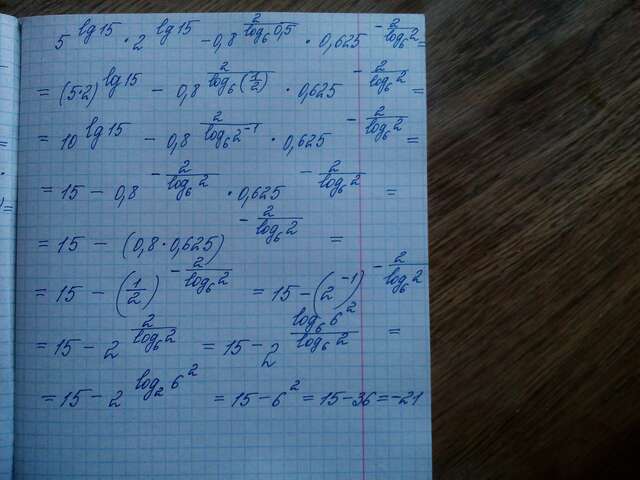 5^{lg15} · 2^{lg15} - 0,8^{\frac{2}{log_6 0,5}} · 0,625^{-\frac{2}{log_6 2}} =
= (5·2)^{lg15} - 0,8^{\frac{2}{log_6(\frac{1}{2})}} · 0,625^{-\frac{2}{log_6 2}} =
= 10^{lg15} - 0,8^{\frac{2}{log_6 2^{-1}}} · 0,625^{-\frac{2}{log_6 2}} =
= 15 - 0,8^{-\frac{2}{log_6 2}} · 0,625^{-\frac{2}{log_6 2}} =
= 15 - (0,8·0,625)^{-\frac{2}{log_6 2}} =
= 15 - (\frac{1}{2})^{-\frac{2}{log_6 2}} = 15 - (2^{-1})^{-\frac{2}{log_6 2}}
= 15 - 2^{\frac{2}{log_6 2}} = 15 - 2^{\frac{log_6 6^2}{log_6 2}} =
= 15 - 2^{log_2 6^2} = 15 - 6^2 = 15 - 36 = -21